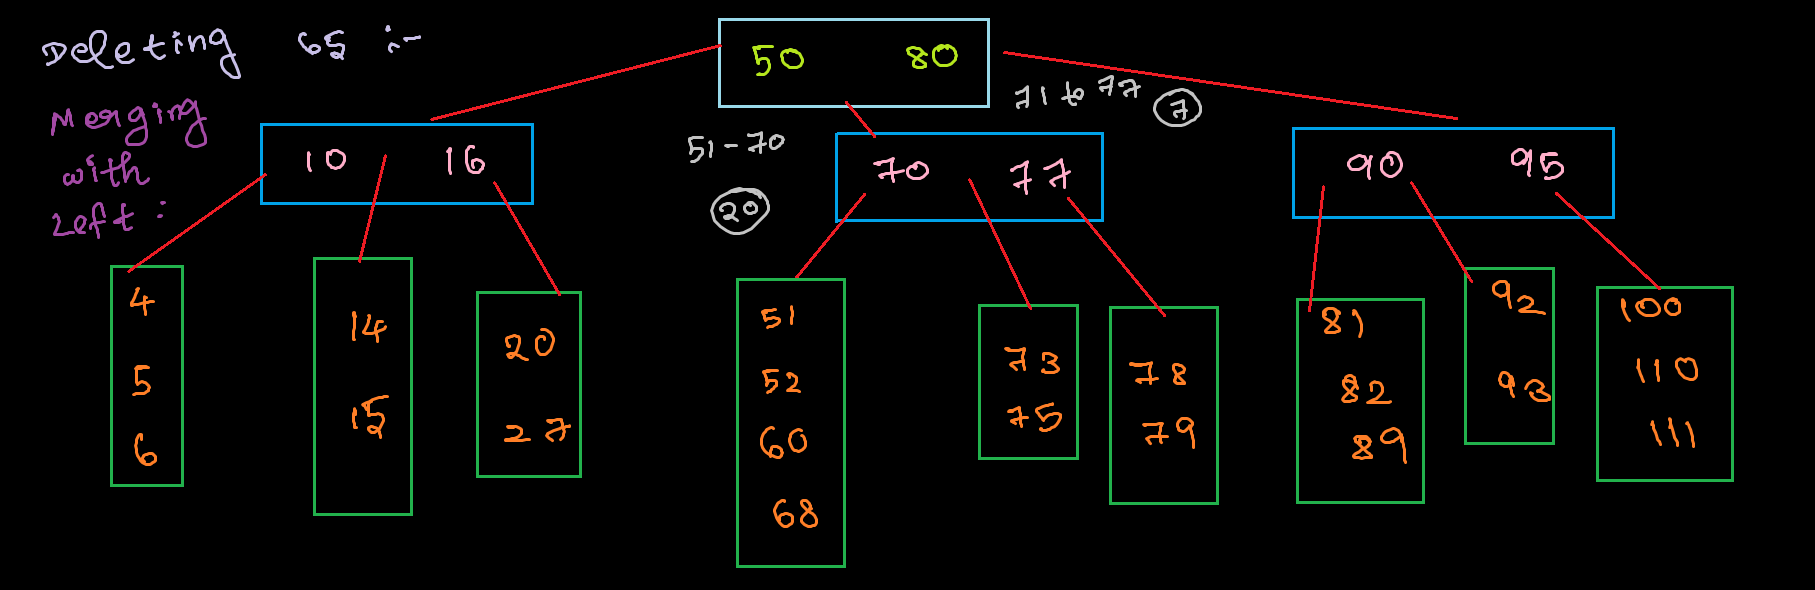 Deleting 65 :-
Merging
with
Left :
50 80
71 to 77 7
51-70
20
10 16
70 77
90 95
4
5
6
14
15
20
27
51
52
60
68
73
75
78
79
81
82
89
92
93
100
110
111